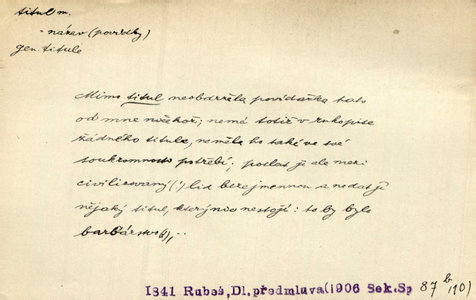 titul m.
- název (povídky)
gen. titule
Mimo titul neobdržela povídačka tato
od mne ničehož; nemá totiž v rukopise
žádného titule, neměla ho také ve své
soukromnosti potřebí; poslat ji ale mezi
civilisovaný (!) lid bezejmennou a nedat jí
nějaký titul, kterým nestojí: to by bylo
barbarstvo(!),..
1841 Rubeš, Dl. předmluva (1906 Sek. Sp 87 b, 10)